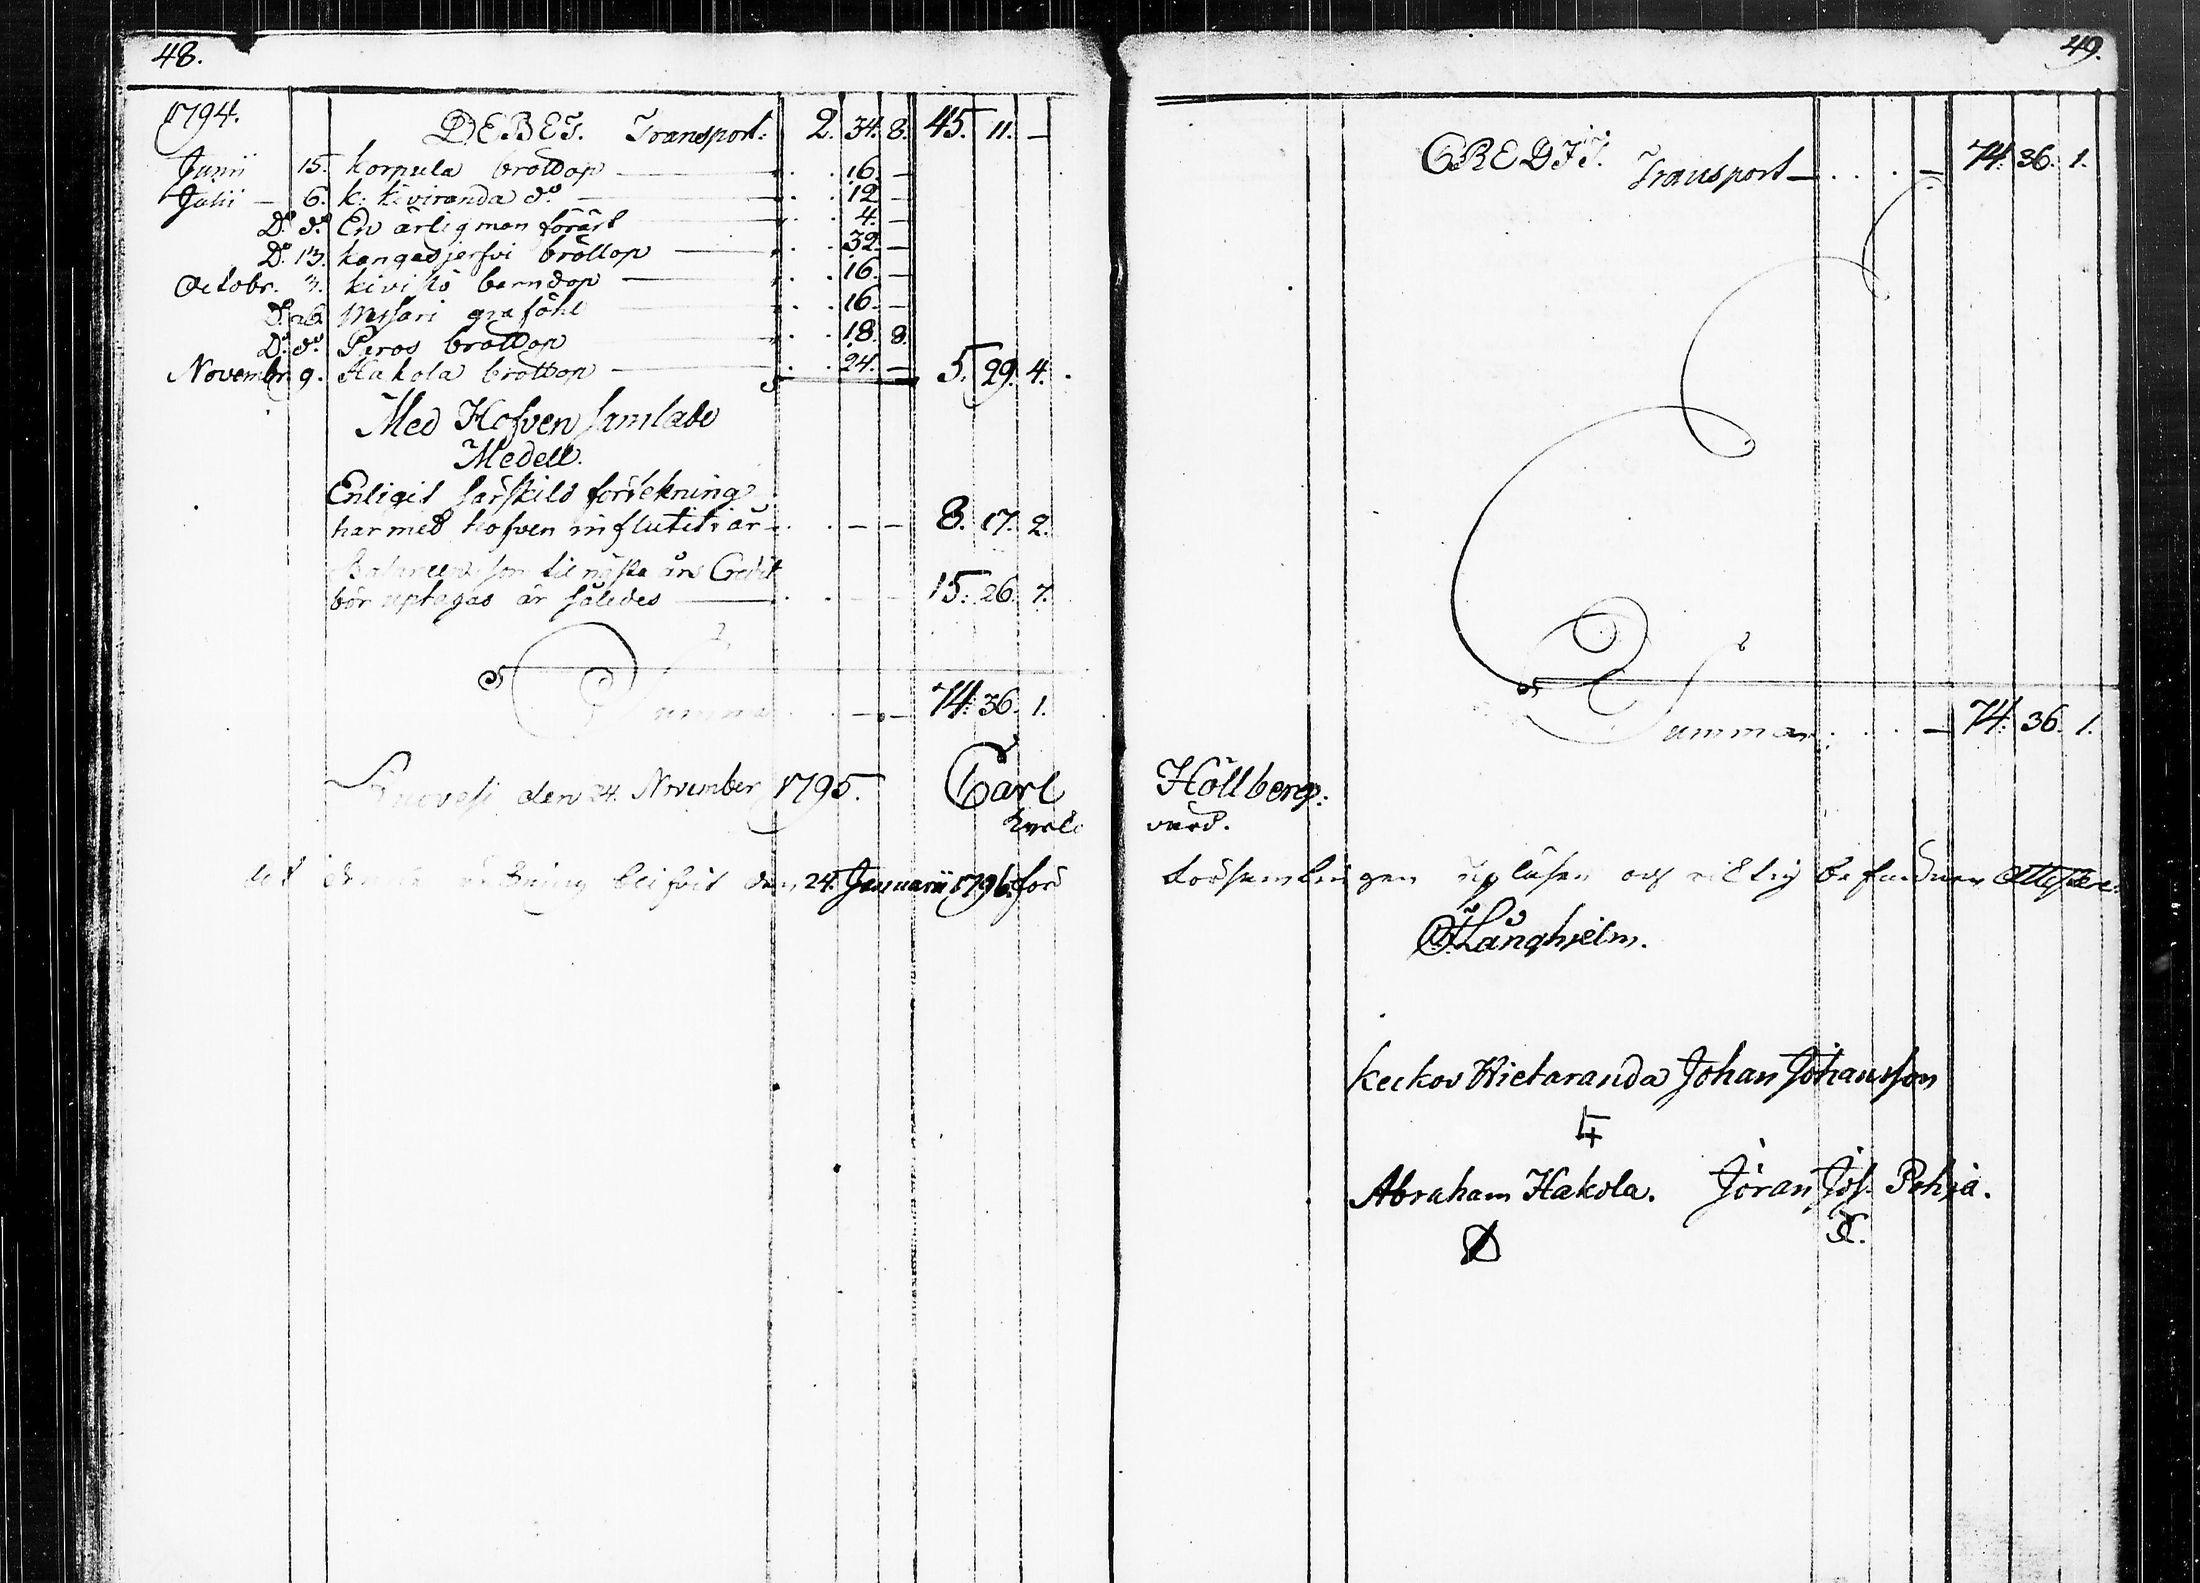 48.
1794. DEBET. Transport: 2. 34. 8. 45. 11. —
Junii 15. korpula bröllop — 16. —
Julii — 6. k: kiviranda do — 12 —
Do do En ärlig man förärt — 4. —
Do 13. kangasjerfvi bröllop — 32. —
Octobr. 3. kivistö barndop — 16. —
Do 26. graföhl — 16. —
Do do Piros bröllop — 18. 8.
Novembr. 9. Hakola bröllop — 24. — 5. 29. 4.
Med Hofven samlade
Medell.
Enligit särskild förtekning
har med hofven influtit i år — — 8. 17. 2.
Balancen som til nästa års Credit
bör uptagas är således — 15. 26. 7.
Summa — 74. 36. 1.
den 24. November 1795. Carl
rätning blifvit den 24. Januarii 1796. för
49.
CREDIT. Transport — 74. 36. 1.
Summa — 74. 36. 1.
Hollberg:
värd.
församlingen upläsen och riktig befunden attestera:
Långhielm.
Keckos Hietaranda Johan Johansson
Abraham Hakola. Jöran Jös. Pehja.